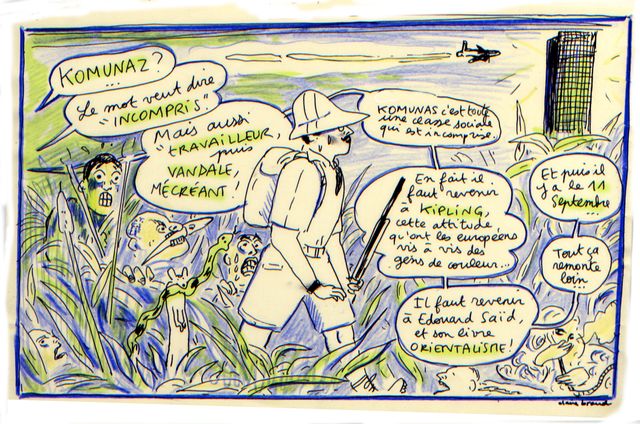 KOMUNAZ?
Le mot veut dire
"INCOMPRIS"
Mais aussi
"TRAVAILLEUR,
puis
VANDALE,
MÉCRÉANT!
KOMUNAS c'est toute
une classe sociale
qui est incomprise...
En fait il
faut revenir
à KIPLING,
cette attitude
qu'ont les européens
vis à vis des
gens de couleur...
Il faut revenir
à Edouard Saïd,
et son livre
ORIENTALISME!
Et puis il
y a le 11
Septembre
...
Tout ça
remonte
loin...
claire braud